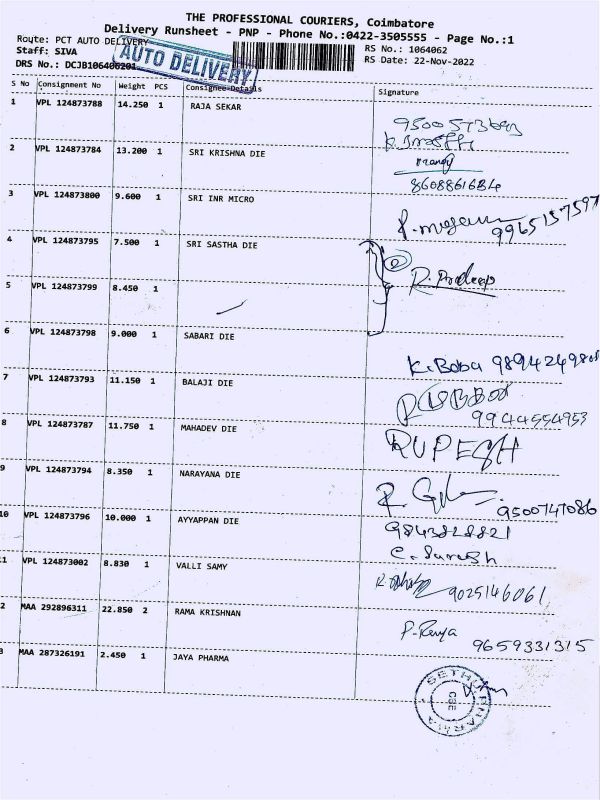 THE PROFESSIONAL COURIERS, Coimbatore
Delivery Runsheet - PNP - Phone No.:0422-3505555 - Page No.:1
Route: PCT AUTO DELIVERY
RS No.: 1064062
Staff: SIVA
RS Date: 22-Nov-2022
DRS No.: DCJB106406201
AUTO DELIVERY
S No Consignment No Weight PCS Consignee Details Signature
1 VPL 124873788 14.250 1 RAJA SEKAR
2 VPL 124873784 13.200 1 SRI KRISHNA DIE
8608861684
3 VPL 124873800 9.600 1 SRI INR MICRO
9965157597
4 VPL 124873795 7.500 1 SRI SASTHA DIE
R. Pradeep
5 VPL 124873799 8.450 1
6 VPL 124873798 9.000 1 SABARI DIE
K. Boba
7 VPL 124873793 11.150 1 BALAJI DIE
9944554953
8 VPL 124873787 11.750 1 MAHADEV DIE
RUPESH
9 VPL 124873794 8.350 1 NARAYANA DIE
9500747086
10 VPL 124873796 10.000 1 AYYAPPAN DIE
9843828821
C. Suresh
VPL 124873002 8.830 1 VALLI SAMY
9025146061
2 MAA 292896311 22.850 2 RAMA KRISHNAN
P. Renya
9659331315
3 MAA 287326191 2.450 1 JAYA PHARMA
SETHU PHARMA
CBE